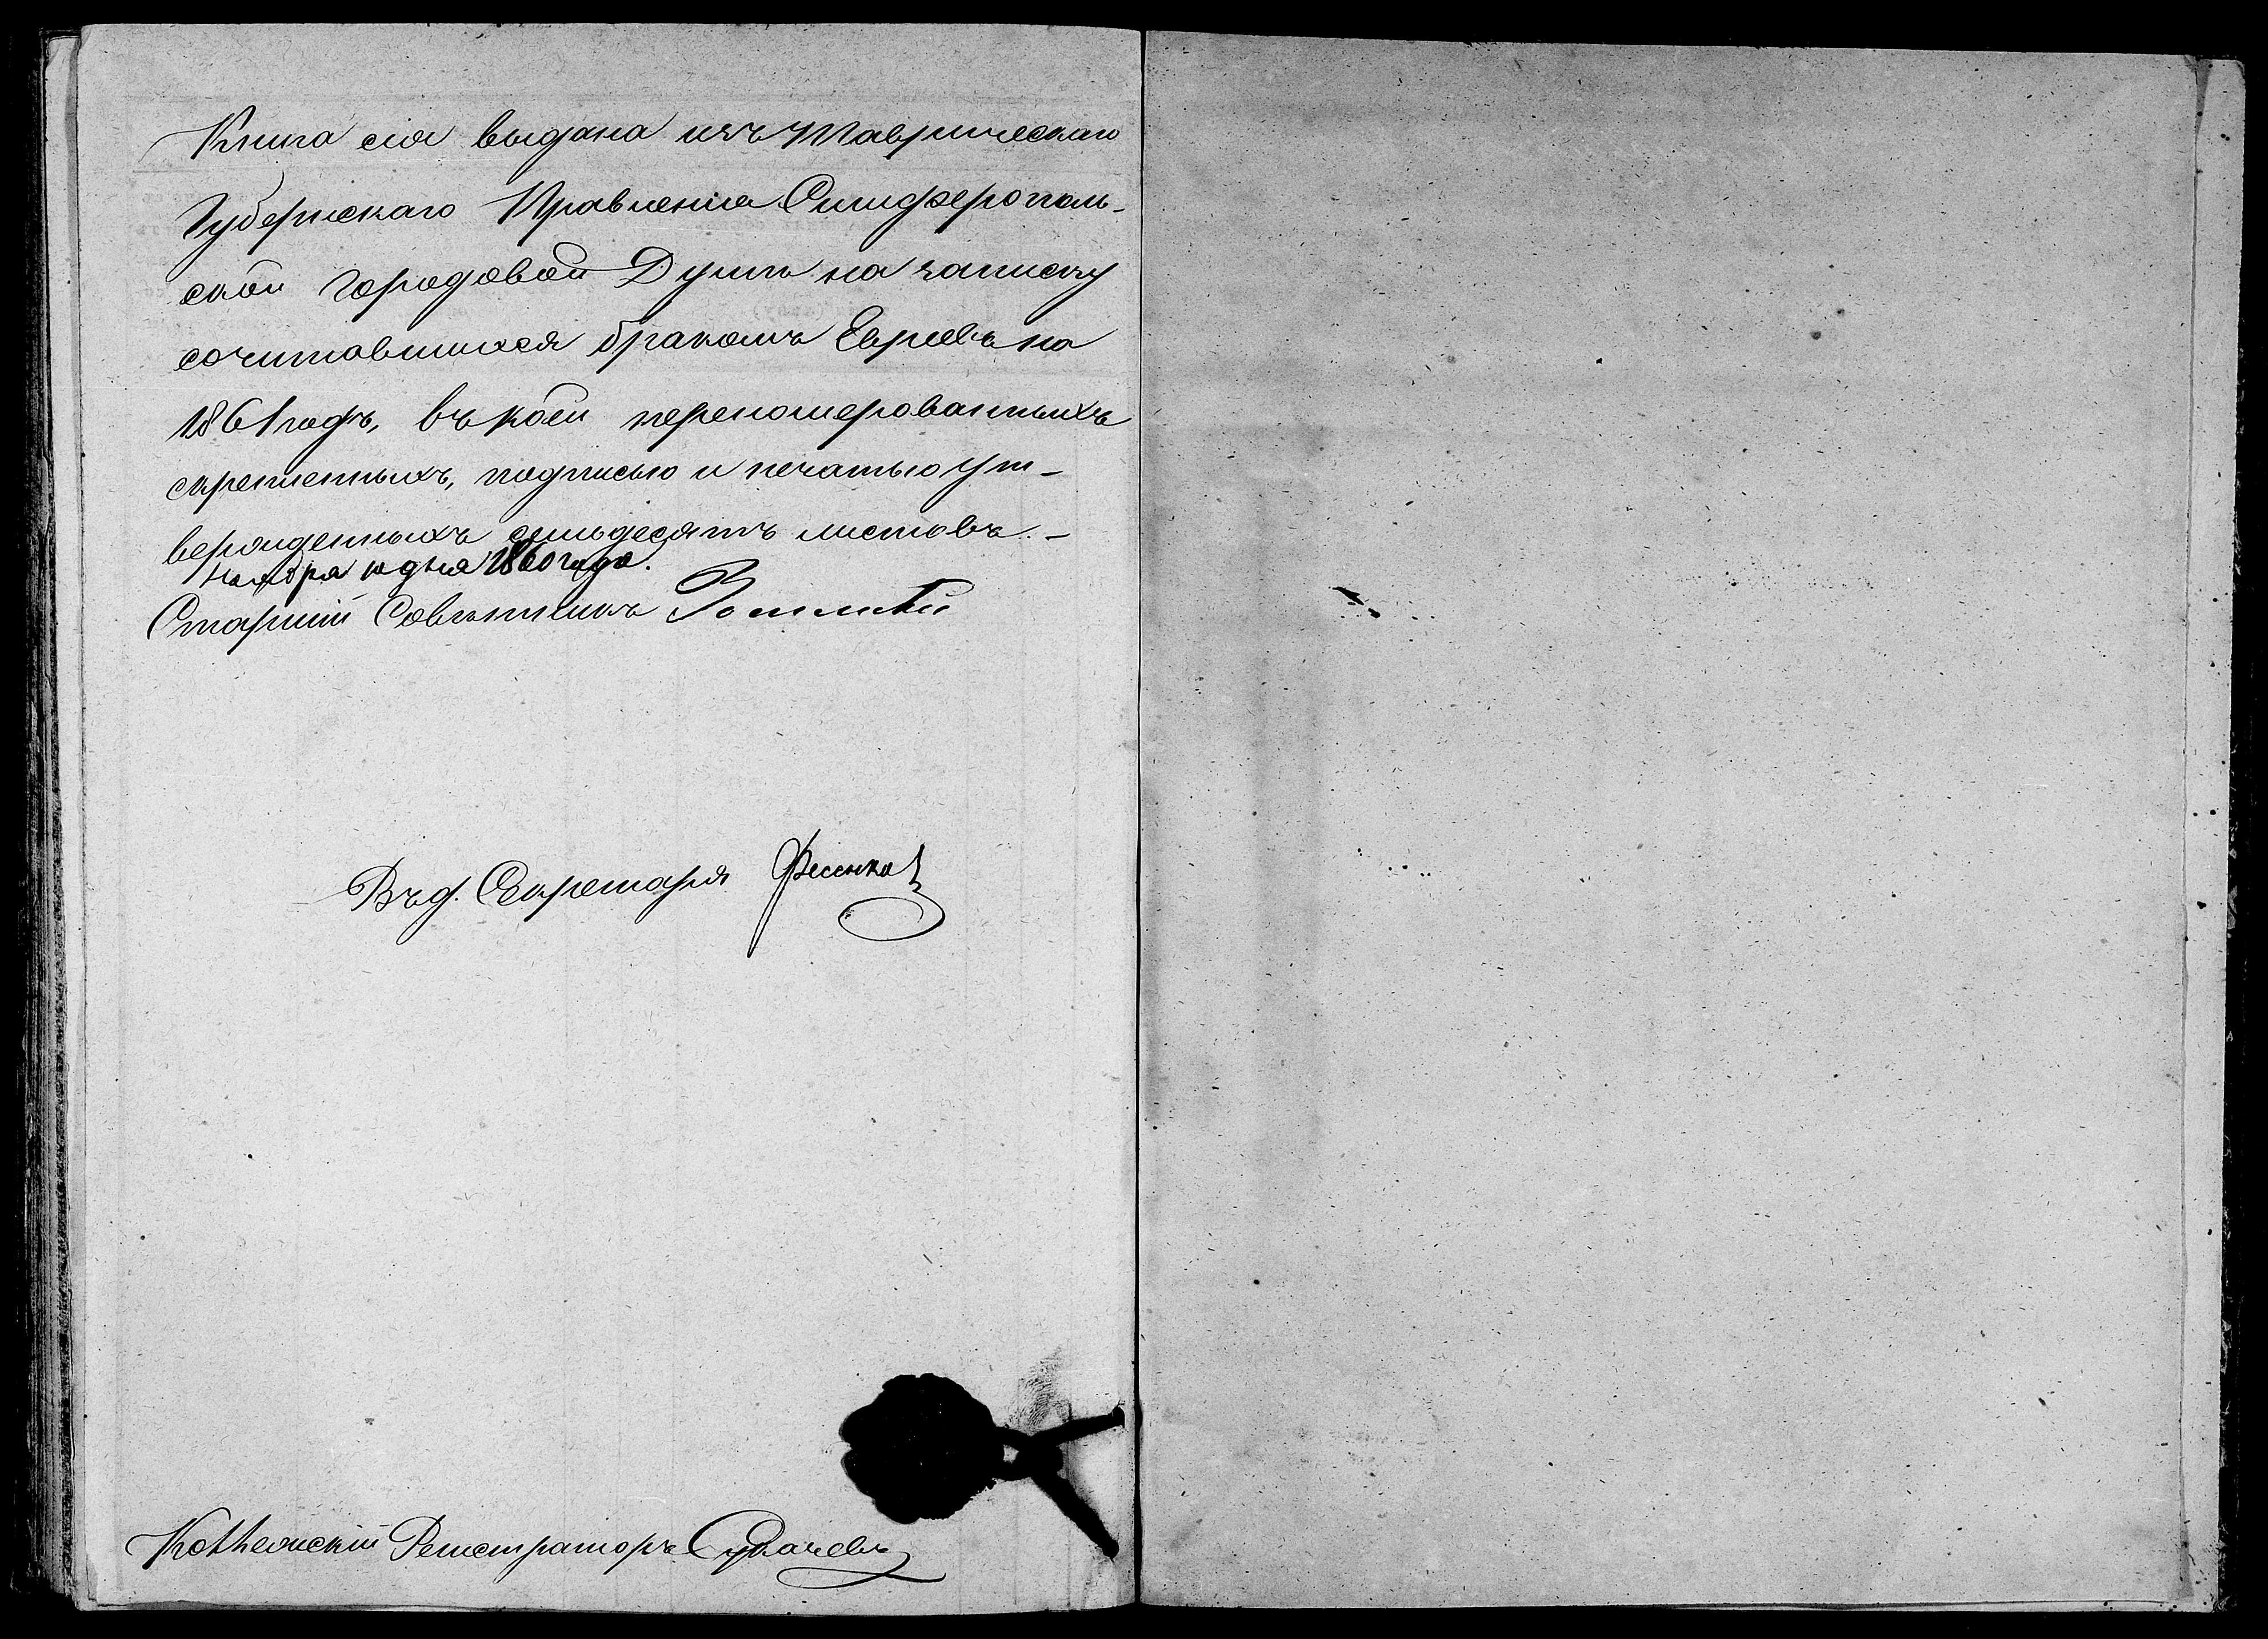 Книга сія выдана изъ Таврическаго
Губернскаго Правленія Симферополь-
ской Городовой Думѣ на записку
сочитавшихся бракомъ Евреевъ на
1861 годъ, въ коей переномерованныхъ
скрепленныхъ, подписью и печатью ут-
вержденныхъ семьдесятъ листовъ.-
Ноября дня 1860 года.
Старшій Совѣтникъ
Въ д. Секретаря Фесенко
Коллежскій Регистраторъ Сухачевъ